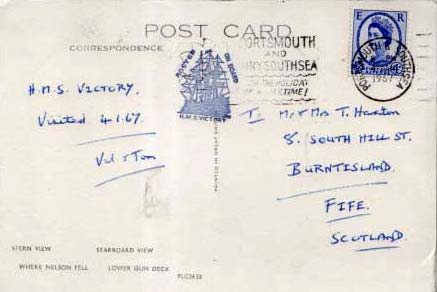 POST CARD
CORRESPONDENCE
H.M.S. VICTORY.
Visited 4.1.67.
Val & Tom
POSTED ON BOARD
H.M.S. VICTORY
PORTSMOUTH
AND
SUNNY SOUTHSEA
FOR THE HOLIDAY
OF A LIFETIME!
PORTSMOUTH & SOUTHSEA
1967
E R
To Mr & Mrs. T. Huxton
8. SOUTH HILL ST.
BURNTISLAND.
FIFE.
SCOTLAND.
PRINTED IN GREAT BRITAIN
STERN VIEW STARBOARD VIEW
WHERE NELSON FELL LOWER GUN DECK PLC2628